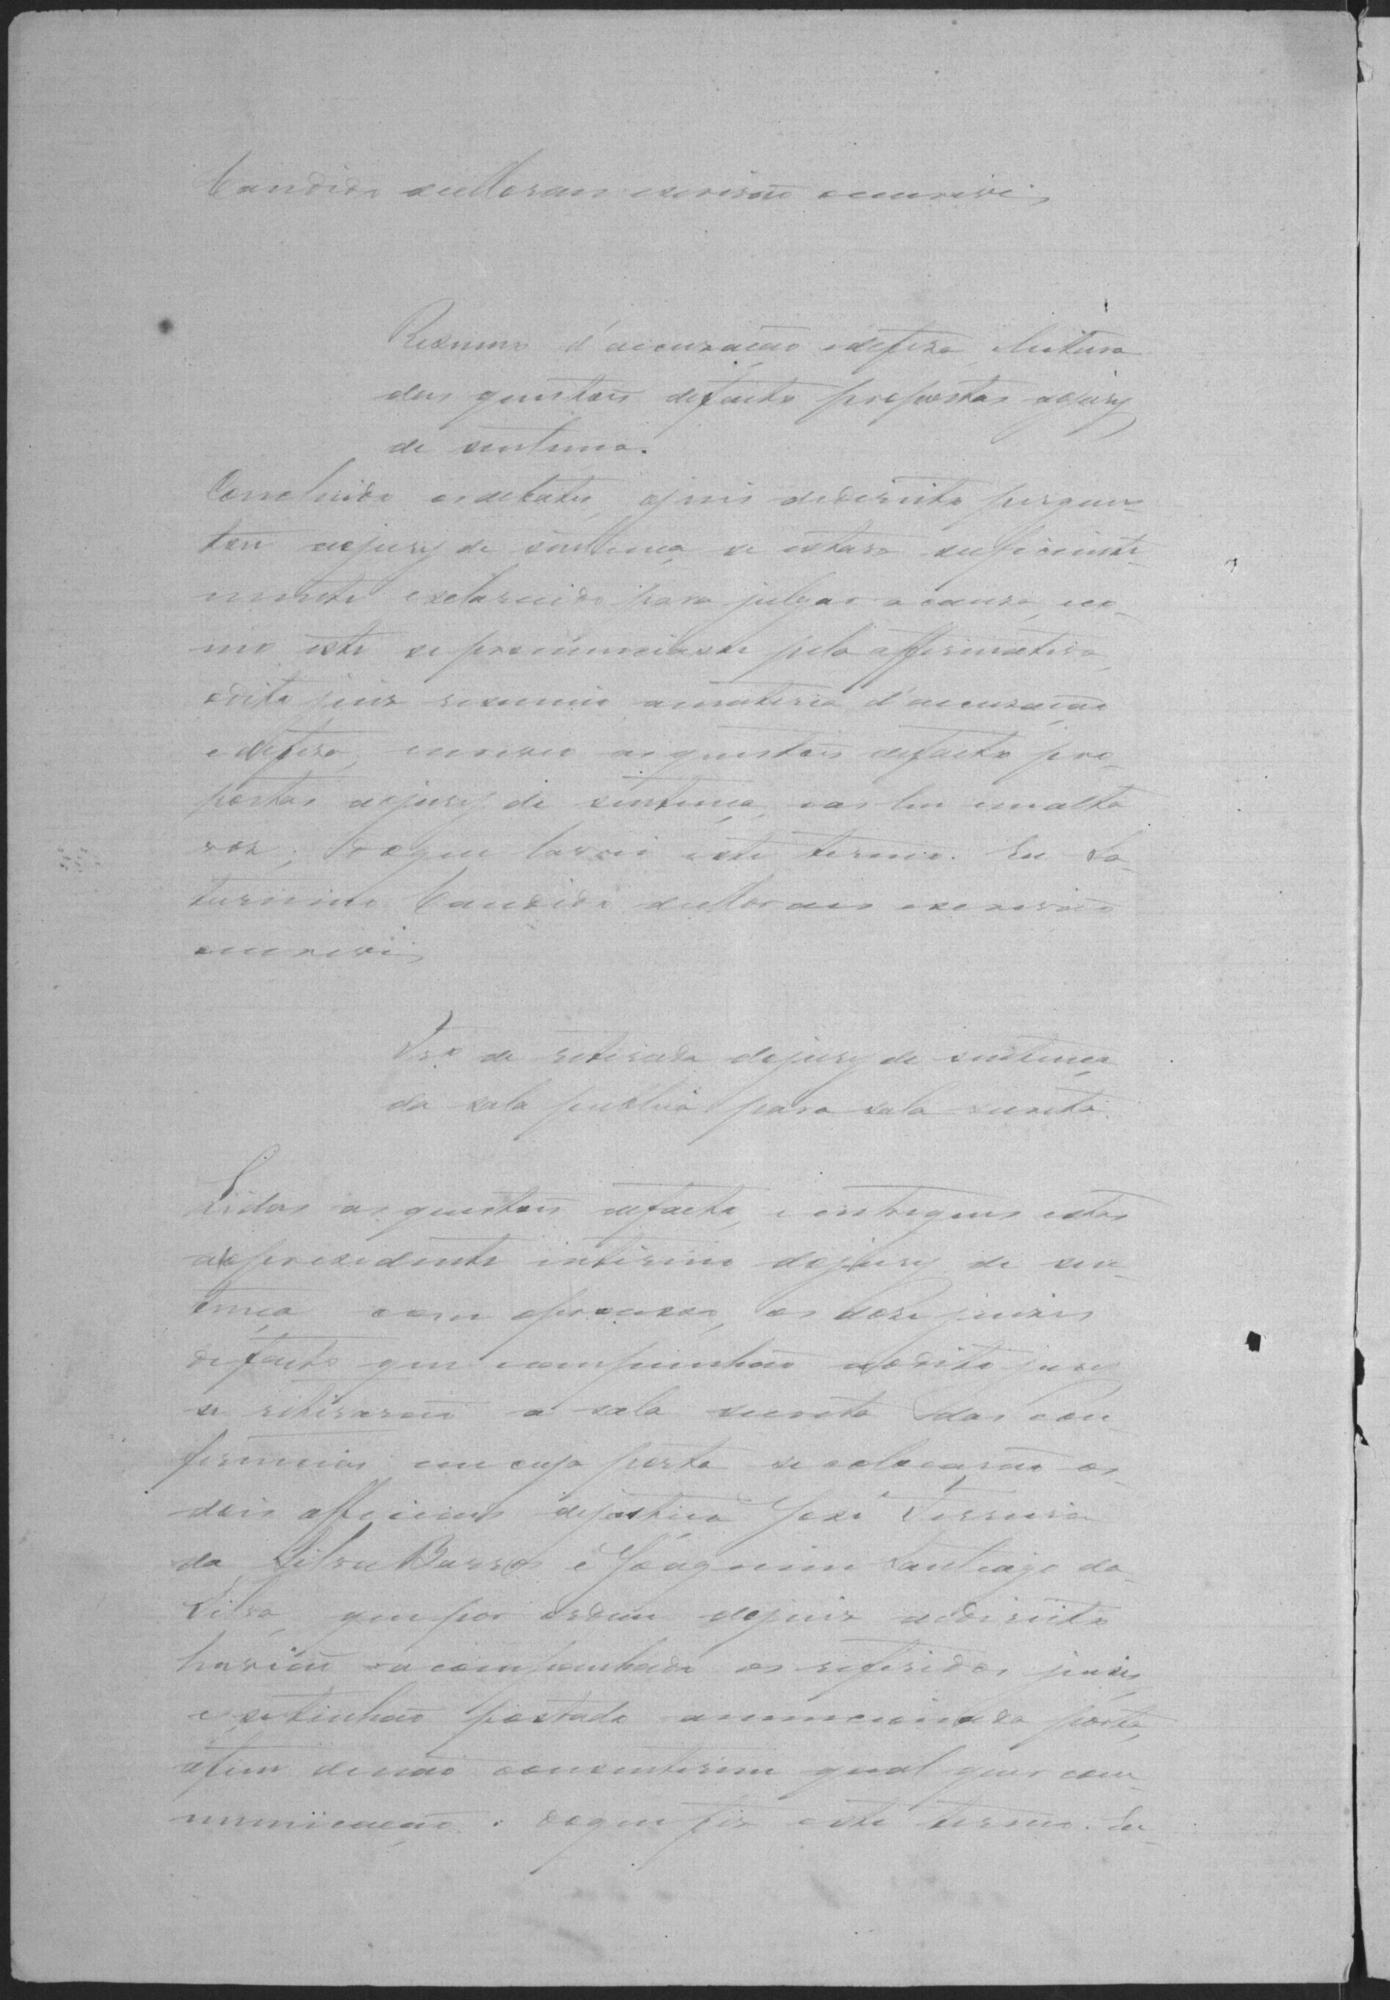 Candido de Moraes escrivão escrevi,
Resumo d'accusação e defeza, leitura
das questões de facto propostas ao jury
de sentença.
Concluido os debates, o juis de direito pergun-
tou ao jury de sentença se estava suficiente-
mente esclarecido para julgar a causa, e co-
mo este se pronunciasse pela affirmativa,
o dito juiz resumio a materia d'accusação
e defeza, escreveo as questões de facto pro-
postas ao jury de sentença, e as leu em alta
voz; do que lavrei este termo. Eu Sa-
turnino Candido de Moraes escrivão
escrevi,
Tr.º da retirada do jury de sentença
da sala publica para sala secreta.
Lidas as questões de facto, e entregues estas
ao presidente interino do jury de sen-
tença com o processo, os doze juizes
de facto que compunhão o dito jury
se retirarão a sala secreta das con-
ferencias em cuja porta se colocarão os
dois officiaes de justiça José Ferreira
da Silva Barros e Joaquim Santiago da
Silva, que por ordem do juiz de direito
havião acompanhado os referidos juizes,
e se tinhão postado a mencionada porta,
afim de não consentirem qual quer com-
municação. do que fiz este termo. Eu